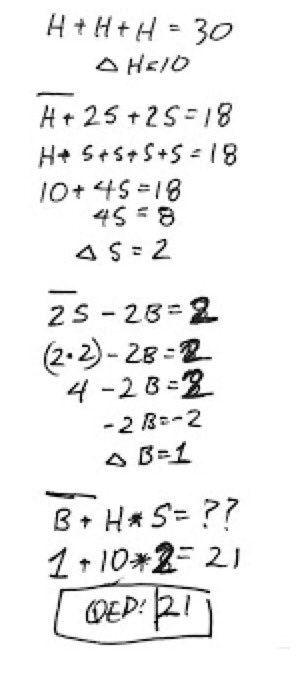 H + H + H = 30
△ H = 10
H + 2S + 2S = 18
H + S + S + S + S = 18
10 + 4S = 18
4S = 8
△ S = 2
2S - 2B = 2
(2•2) - 2B = 2
4 - 2B = 2
-2B = -2
△ B = 1
B + H * S = ??
1 + 10 * 2 = 21
QED: 21